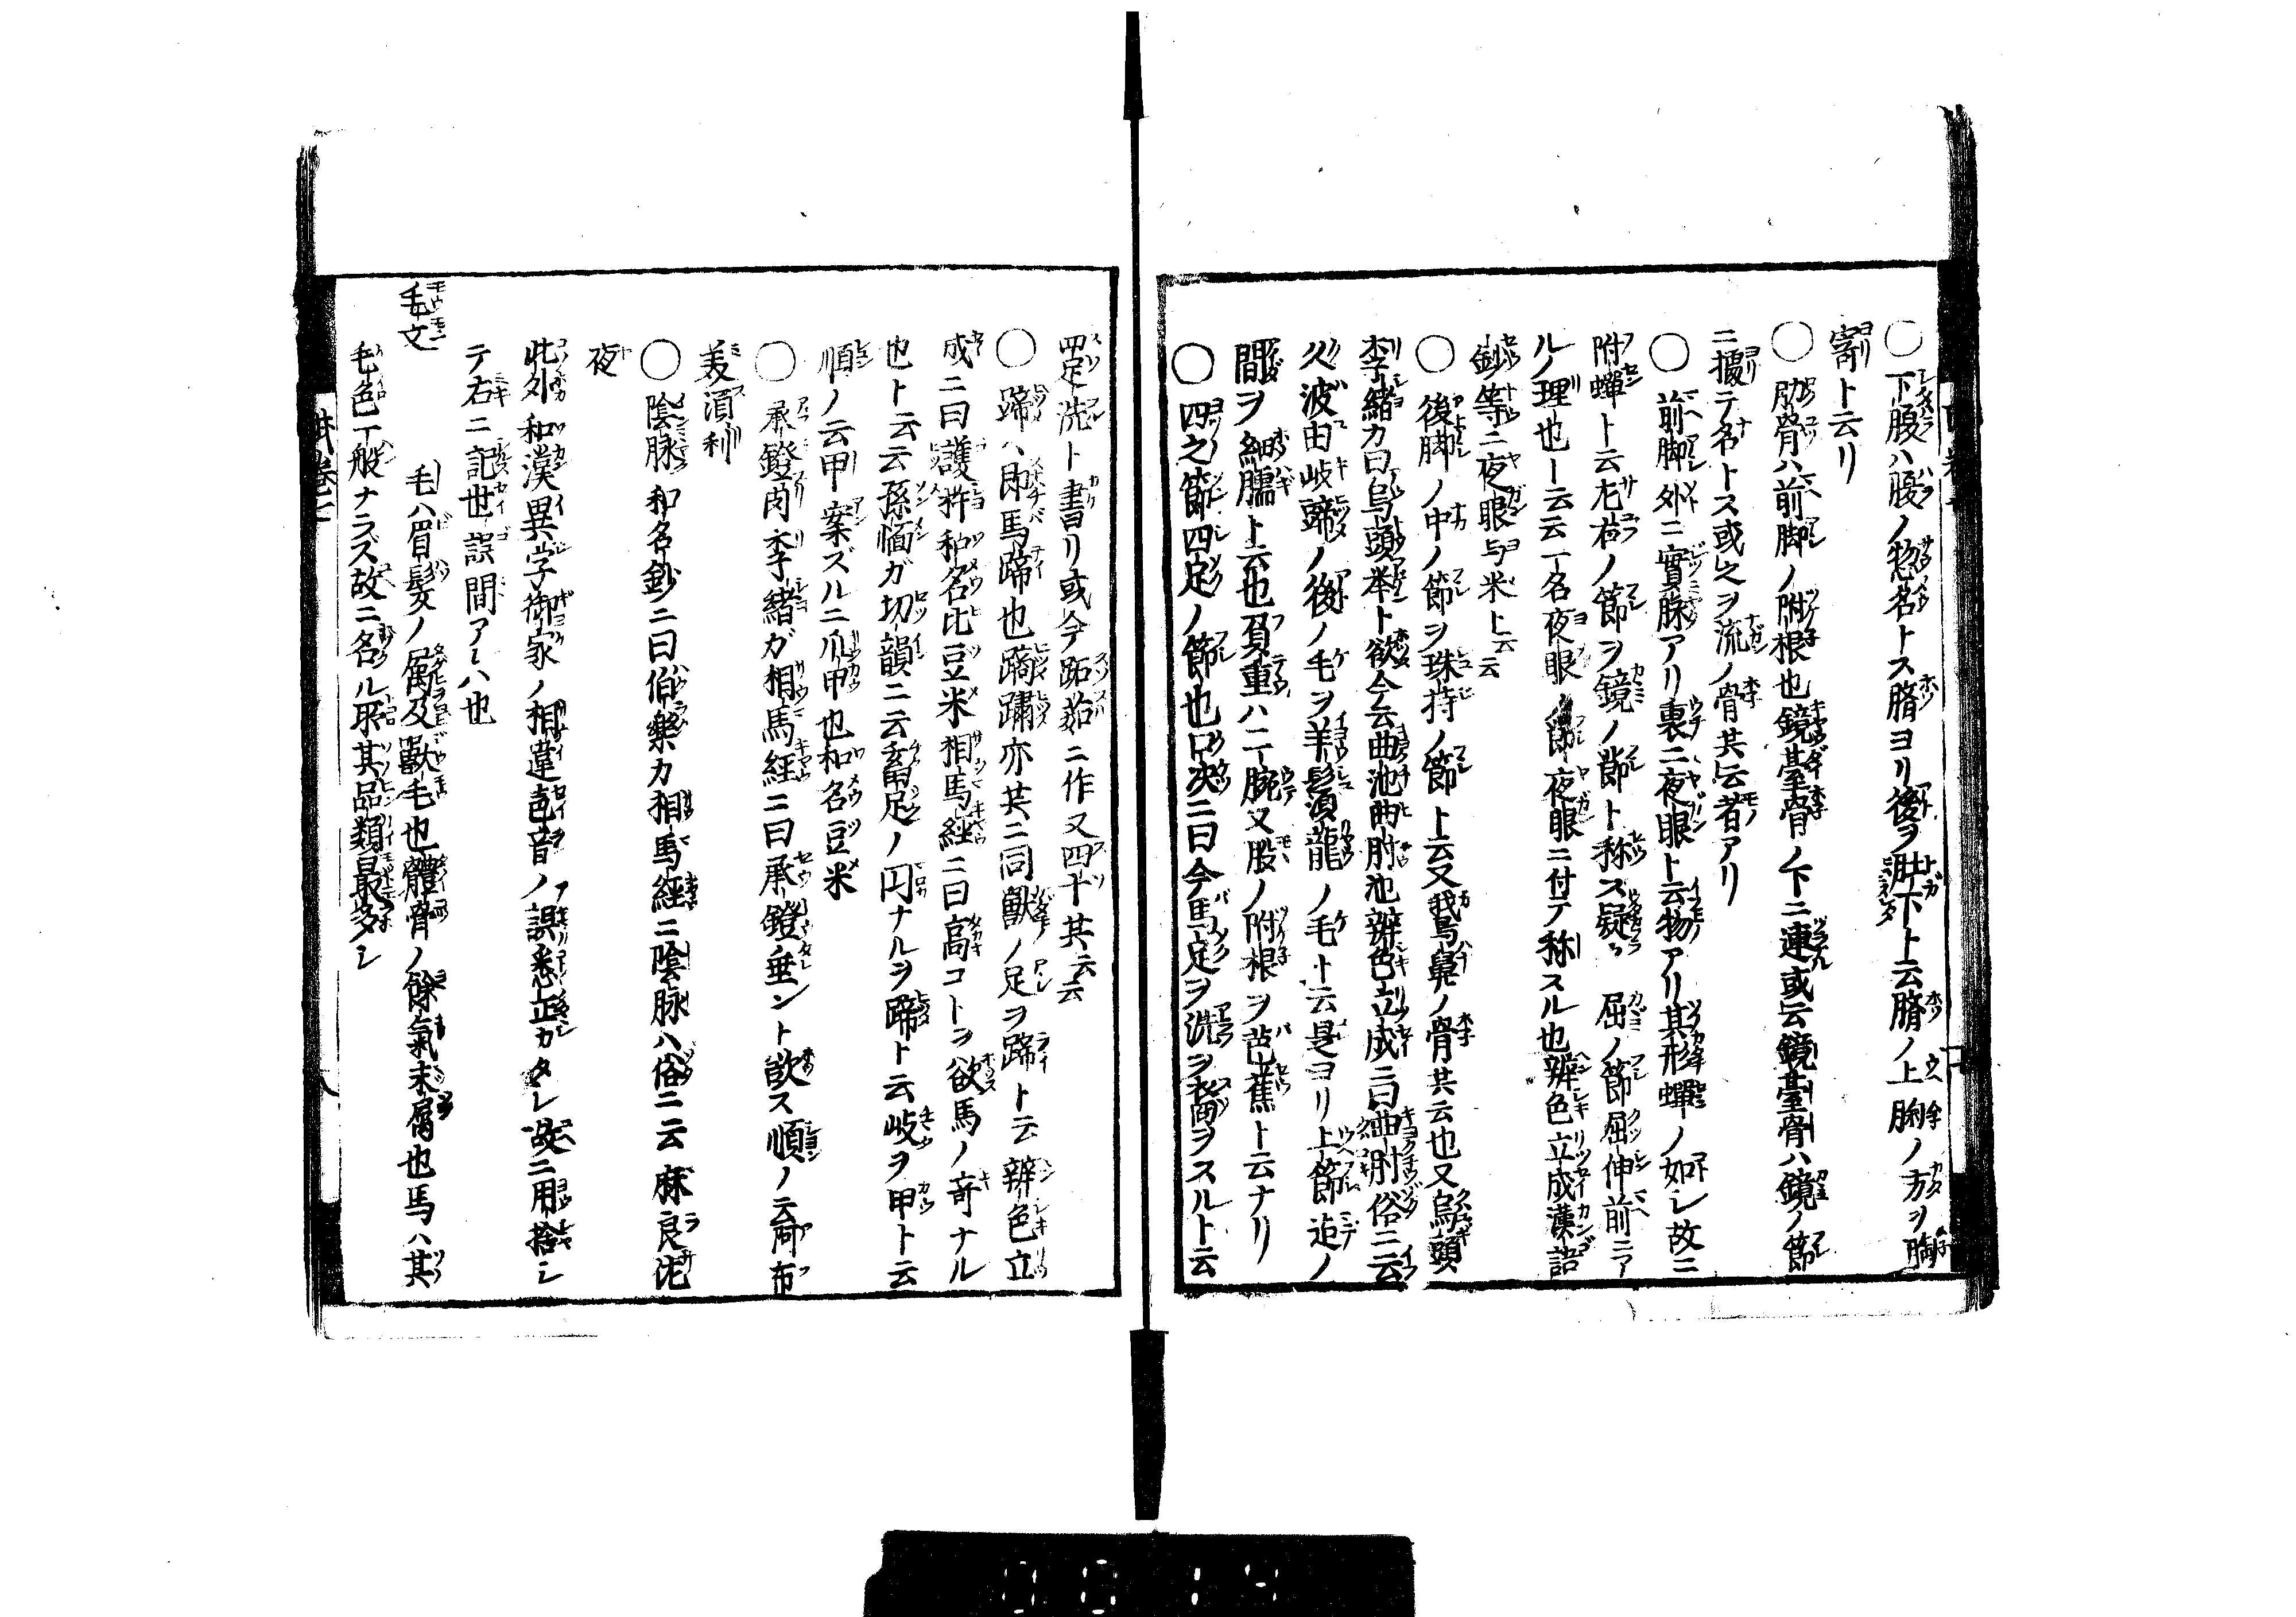 ○下腹ハ腹ノ惣名トス臍ヨリ後ヲ肚下ト云臍ノ上胸ノ方ヲ胸
寄リト云リ
○肋骨ハ前脚ノ附根也鏡臺骨ノ下ニ連或云鏡臺骨ハ鏡ノ節
ニ據テ名トス或之ヲ流ノ骨共云者アリ
○前脚外ニ實脉アリ裏ニ夜眼ト云物アリ其形蟬ノ如シ故ニ
附蟬ト云左右ノ節ヲ鏡ノ節ト称ス疑ラ屈ノ節屈伸前ニア
ルノ理也ト云云一名夜眼ノ節夜眼ニ付テ称スル也辨色立成漢語
鈔等ニ夜眼与米ト云云
○後脚ノ中ノ節ヲ珠持ノ節ト云又我烏鼻ノ骨共云也又烏頭
李緒カ曰烏頭挙ト欲今云曲池曲肘池辨色立成ニ曰曲肘俗ニ云
久波由岐蹄ノ後ノ毛ヲ羊鬚龍ノ毛ト云是ヨリ上節迄ノ
間ヲ細臑ト云也負重ハ二腕又股ノ附根ヲ芭蕉ト云ナリ
○四之節四足ノ節也口决ニ曰今馬足ヲ洗ヲ裾ヲスルト云
四足洗ト書リ或今跖茹ニ作又四下其云云
○蹄ハ即馬蹄也蹢䠞亦共ニ同獸ノ足ヲ蹄ト云辨色立
成ニ曰護許和名比豆米相馬經ニ曰高コトヲ欲馬ノ奇ナル
也ト云云孫愐ガ切韻ニ云畜足ノ円ナルヲ蹄ト云岐ヲ甲ト云
順ノ云甲案ズルニ爪甲也和名豆米
○承鐙肉李緒ガ相馬經ニ曰承鐙垂ント欲ス順ノ云阿布
美須利
○陰脉和名鈔ニ曰伯樂カ相馬經ニ陰脉ハ俗ニ云麻良佐
夜
此外和漢異字御家ノ相違色音ノ誤悉正カタシ故ニ用捨シ
テ右ニ記世誤間アレハ也
毛文
毛ハ眉髪ノ属及獸毛也體骨ノ餘氣末屑也馬ハ其
毛色一般ナラズ故ニ名ル所其品類最多シ